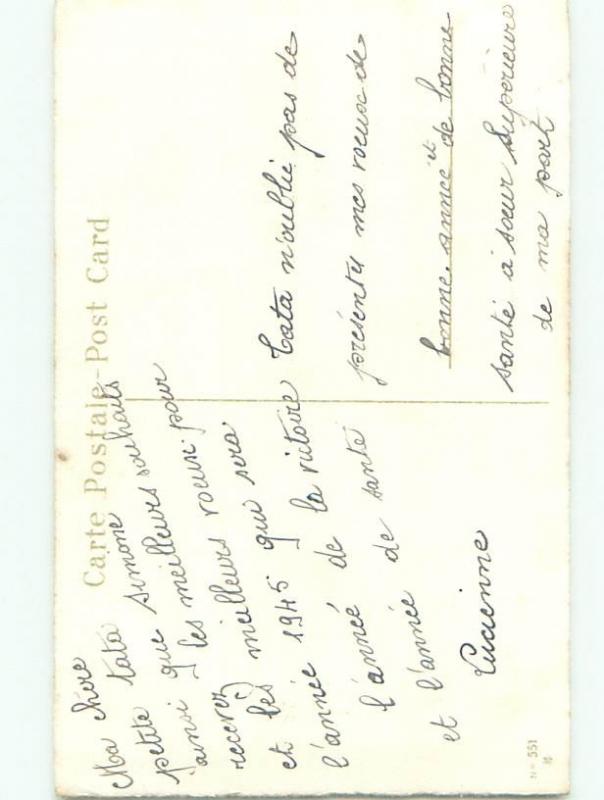 Carte Postale - Post Card
Ma chère
petite tata Simone
ainsi que meilleurs souhaits
recevez les meilleurs vœux pour
et les meilleurs vœux
l'année 1945 qui sera
l'année de la victoire
et l'année de santé
Lucienne
Tata n'oublie pas de
présenter mes vœux de
bonne année et de bonne
santé à sœur Supérieure
de ma part
N° 551